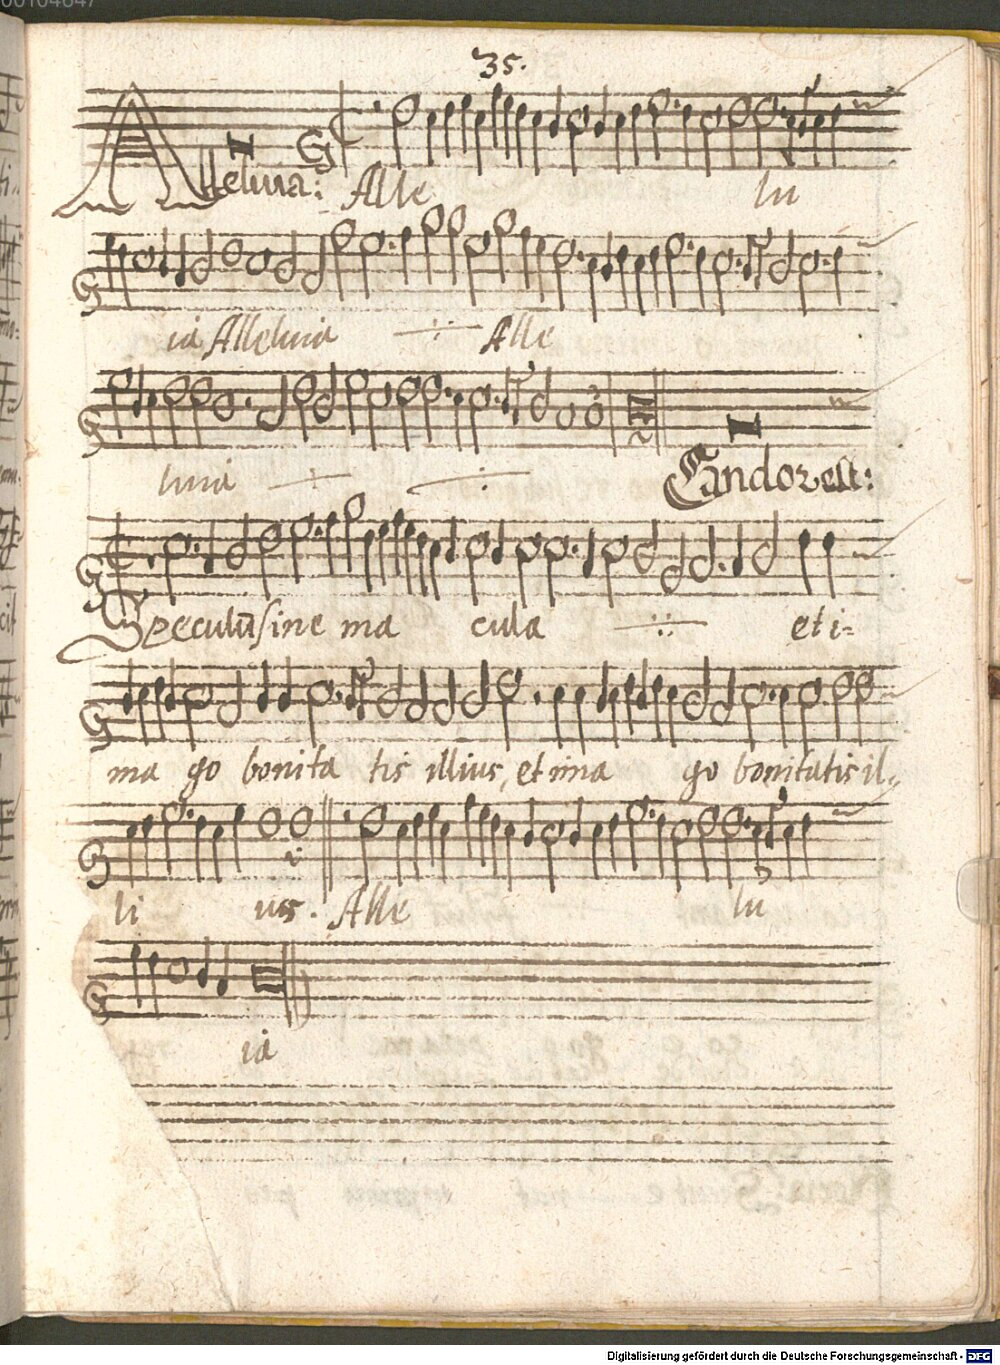 00104647
35.
Alleluia: Alle lu
ia Alleluia Alle
luia Candor est:
Speculū sine ma cula et i=
ma go bonita tis illius, et ima go bonitatis il=
li us. Alle lu
ia
Digitalisierung gefördert durch die Deutsche Forschungsgemeinschaft - DFG